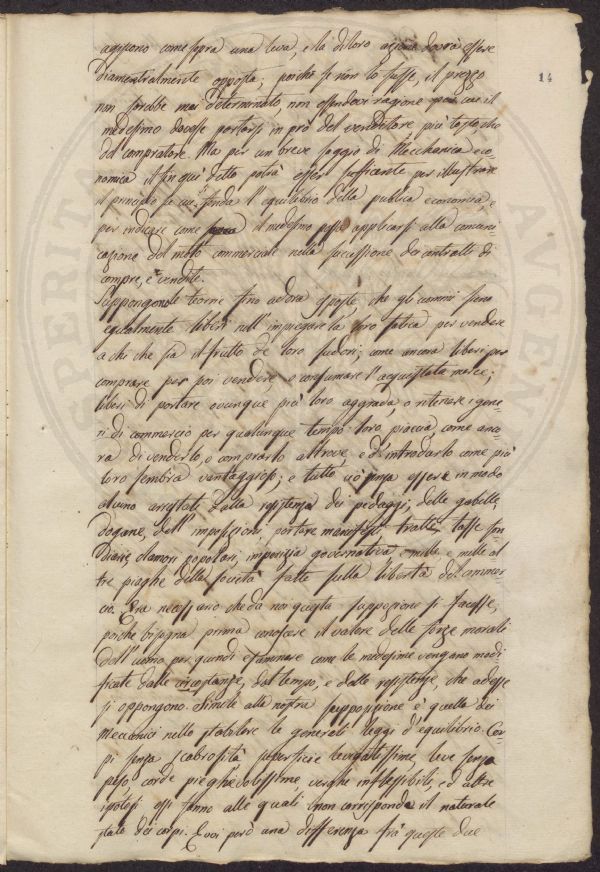 agiscono come sopra una leva, e la di loro azione dovrà essere
diamentralmente opposta; poichè se non lo fosse, il prezzo
14
non sarebbe mai determinato, non essendovi ragione per cui il
medesimo dovesse portarsi in prò del venditore più tosto che
del compratore. Ma per un breve saggio di Mecchanica eco-
nomica il fin quì detto potrà esser sufficiente per illustrare
il principio su cui si fonda l'equilibrio della publica economia, e
per indicare come il medesimo possa applicarsi alla comuni
cazione del moto commerciale nella successione dei contratti di
compre, e vendite.
Suppongono le teorie fino ad ora esposte, che gli uomini siano
egualmente liberi nell'impiegare la loro fatica per vendere
a chi che sia il frutto de loro sudori; come ancora liberi per
comprare per poi vendere, o consumare l'acquistata merce;
liberi di portare ovunque più loro aggrada, o ritenere i gene-
ri di commercio per qualunque tempo loro piaccia, come anco-
ra di venderlo, o comprarlo altrove, e d'introdurlo come più
loro sembra vantaggioso; e tutto ciò senza essere in modo
alcuno arrestati dalla resistenza dei pedaggi, delle gabelle,
dogane, dell'imposizioni, portate manifesti tratte, tasse fon-
diarie clamori popolari, imperizia governativa e mille, e mille al
tre piaghe della società fatte sulla libertà del commer-
cio. Era necessario che da noi questa supposizione si facesse,
poichè bisogna prima conoscere il valore delle forze morali
dell'uomo per quindi esaminare come le medesime vengano modi
ficate dalle circostanze, dal tempo, e dalle resistenze, che ad esse
si oppongono. Simile alla nostra supposizione è quella dei
Meccanici nello stabilire le generali leggi d'equilibrio. Cor-
pi senza scabrosità, superficie levigatissime, leve senza
peso, corde pieghevolissime, verghe inflessibili, ed altre
ipotesi essi fanno alle quali non corrisponde il naturale
stato dei corpi. Evvi però una differenza frà queste due